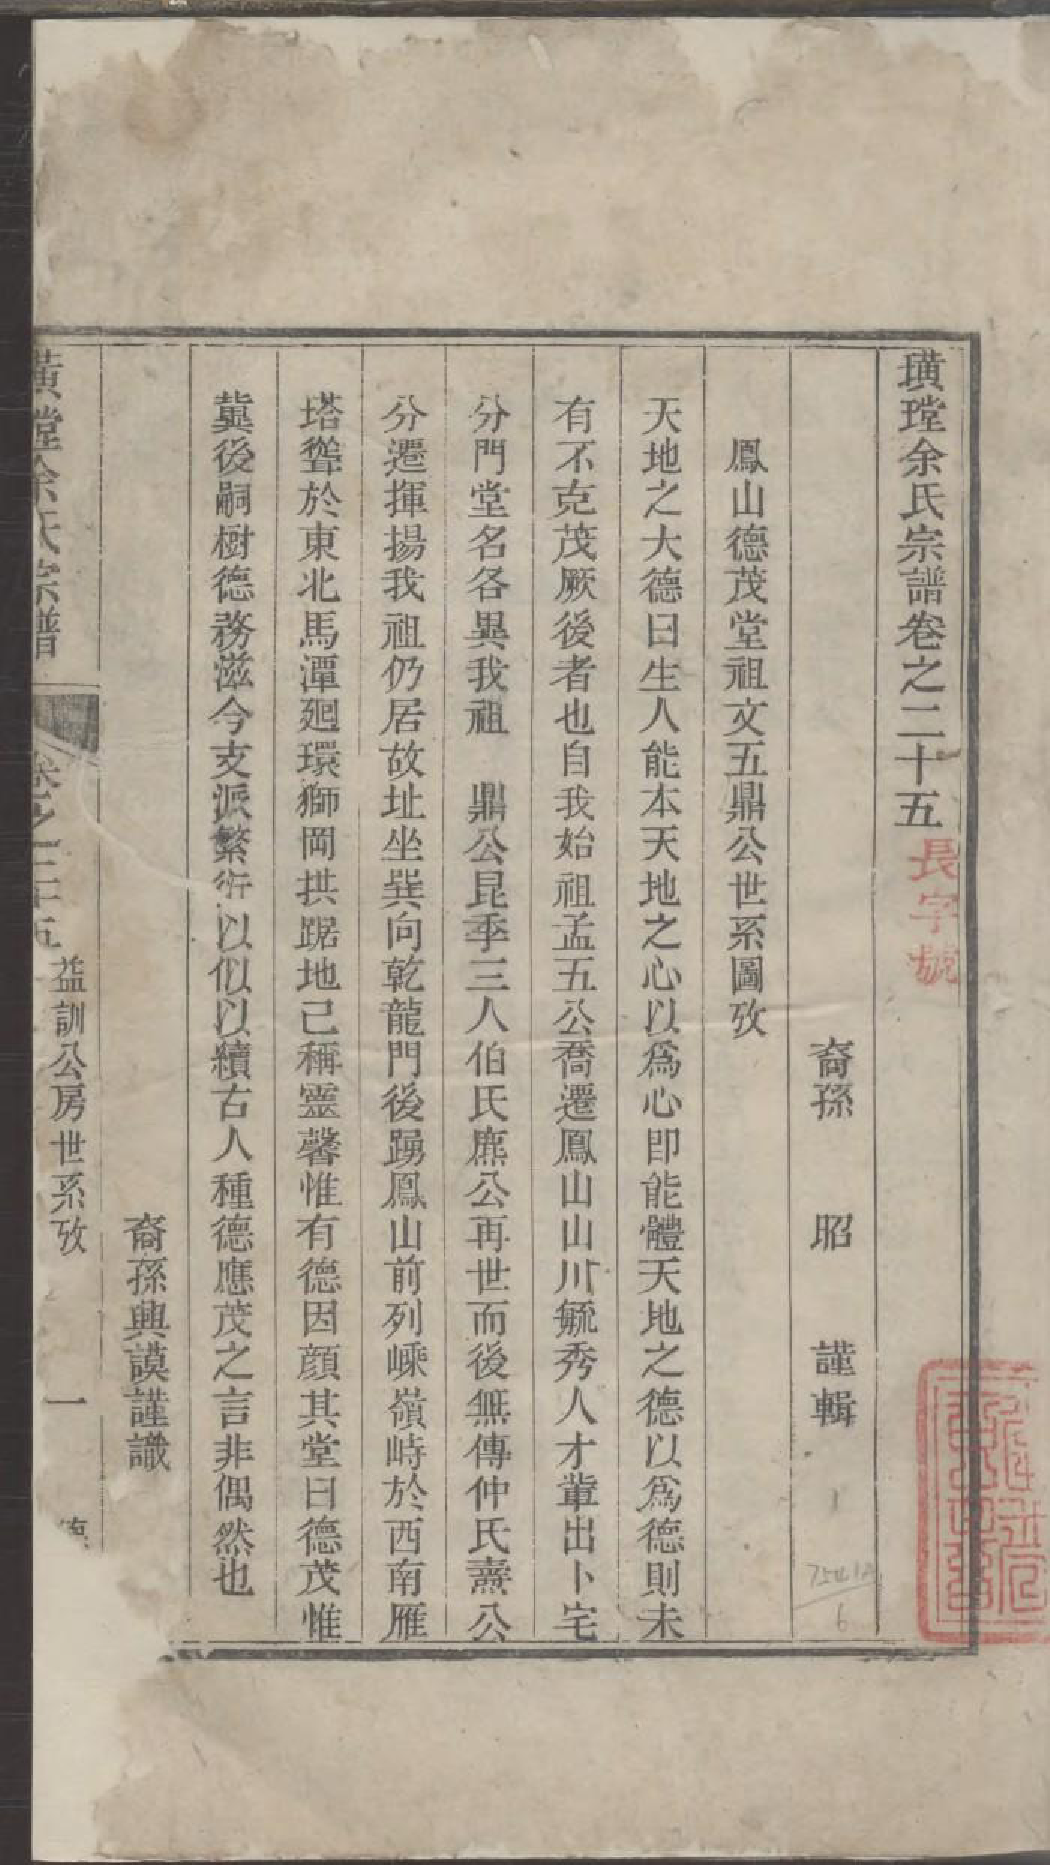 璜瑝余氏宗譜卷之二十五
長字號
裔孫 昭 謹輯
鳳山德茂堂祖文五鼎公世系圖攷
天地之大德曰生人能本天地之心以爲心卽能體天地之德以爲德則未
有不克茂厥後者也自我始祖孟五公喬遷鳳山山川毓秀人才輩出卜宅
分門堂名各異我祖 鼎公昆季三人伯氏廌公再世而後無傳仲氏燾公
分遷揮揚我祖仍居故址坐巽向乾龍門後踴鳳山前列嵊嶺峙於西南雁
塔聳於東北馬潭廻環獅岡拱踞地己稱靈馨惟有德因顏其堂曰德茂惟
冀後嗣樹德務滋今支派繁衍以似以續古人種德應茂之言非偶然也
裔孫興謨謹識
璜瑝余氏宗譜
卷之二十五
益訓公房世系攷
一
德